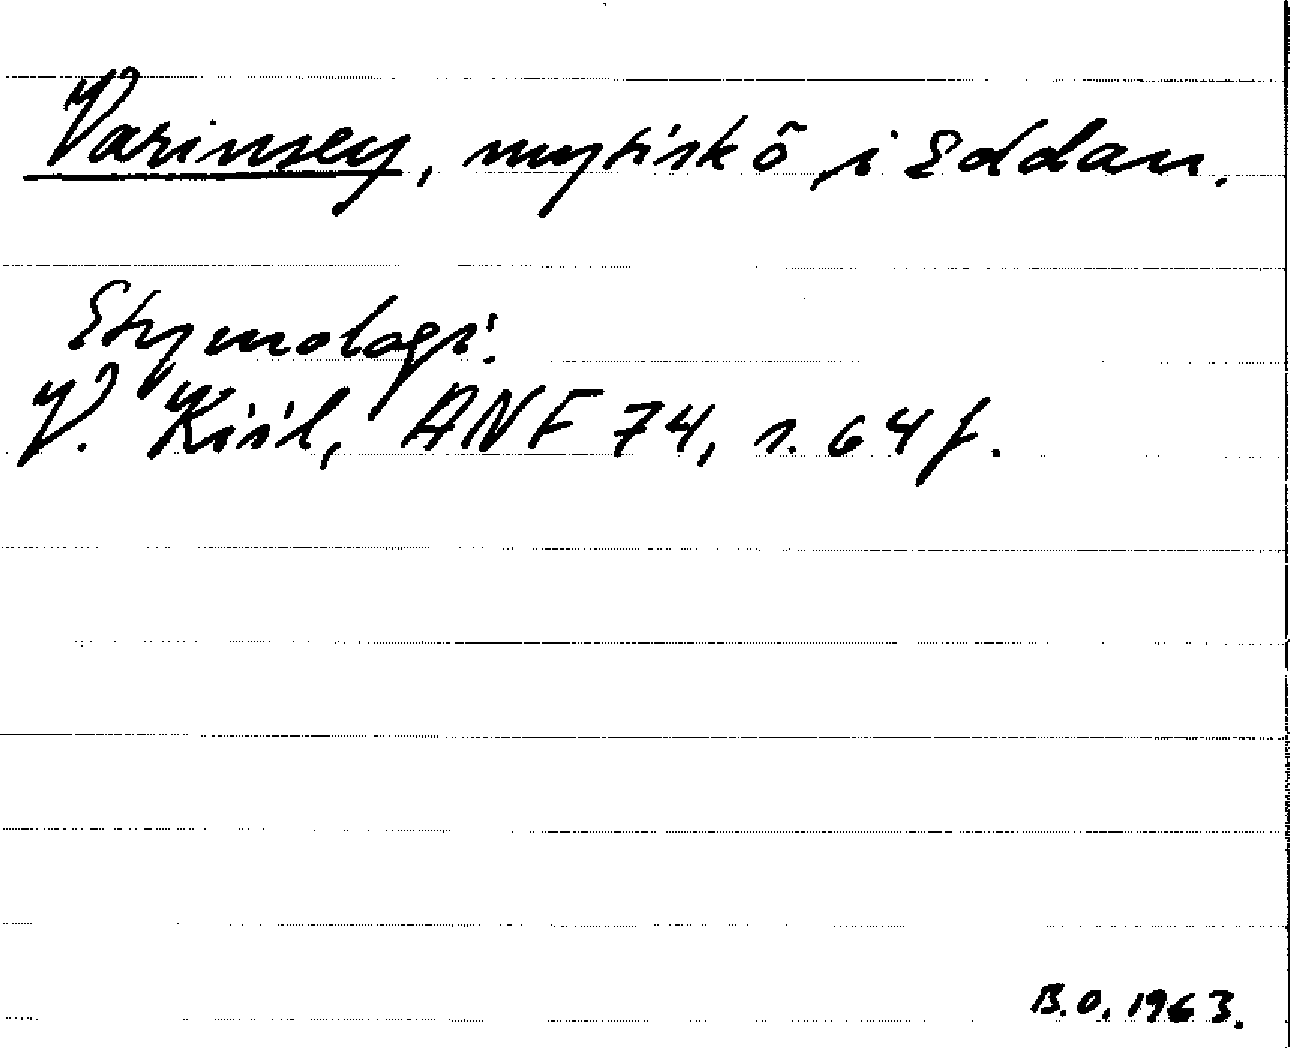 Varinsey, mytisk ö i Eddan.
Etymologi:
V. Kiil, ANF 74, s. 64 f.
B.O. 1963.